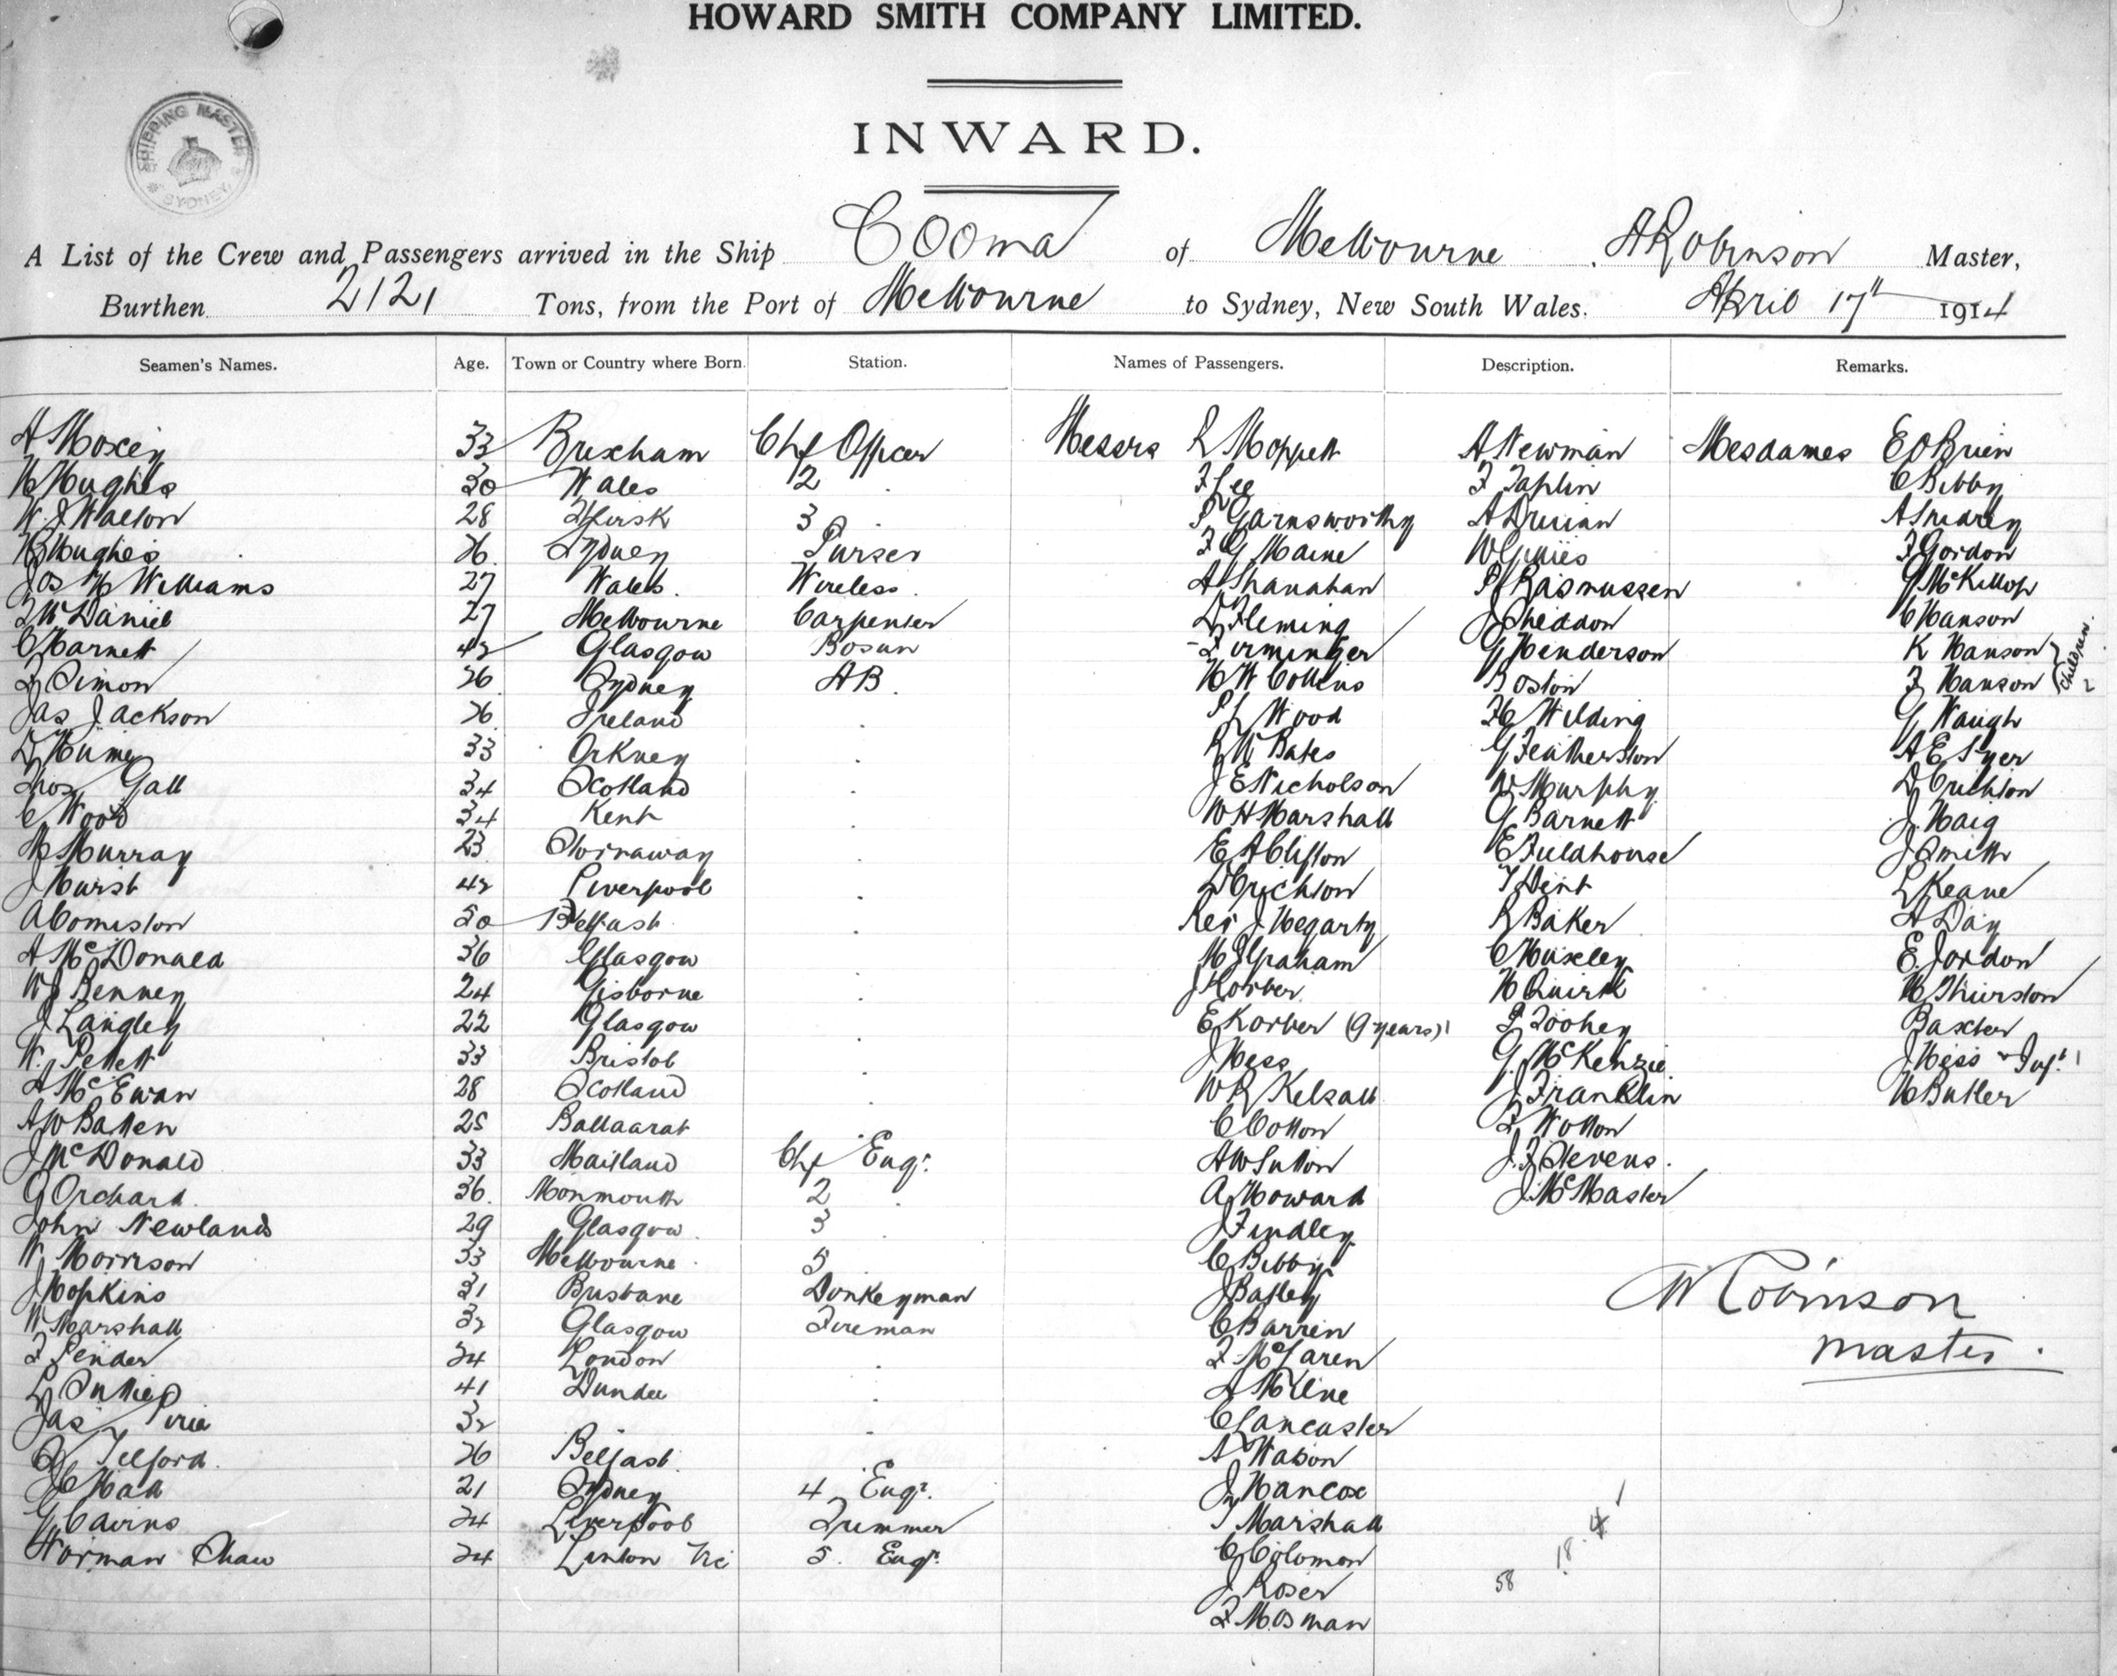 HOWARD SMITH COMPANY LIMITED.
INWARD.
SHIPPING MASTER SYDNEY
A List of the Crew and Passengers arrived in the Ship Cooma of Melbourne, A Robinson Master,
Burthen 2121 Tons, from the Port of Melbourne to Sydney, New South Wales. April 17th 1914
Seamen's Names. Age. Town or Country where Born. Station. Names of Passengers. Description. Remarks.
A Moxey 33 Brixham Chf Officer Messrs R Moppett A Newman Mesdames E O Brien
H Hughes 30 Wales 2 F Lee F Taplin C Bibby
W. J Walton 28 Thirsk 3 P Garnsworthy A
H Hughes 26. Sydney Purser F G Maine W Gillies F Gordon
Jos W Williams 27 Wales. Wireless. A Shanahan P Rasmussen G McKillop
27 Melbourne Carpenter D Fleming J Sheddon C Hanson
C Harnett 42 Glasgow Bosun Firminger G Henderson K Hanson
J Simon 26 Sydney AB. H W Collins Boston F Hanson Children 2
Jas Jackson 26. Ireland P L Wood H Wilding G Waugh
D Hume 33 Orkney R W Bates G Featherston A E Syer
Thos Gall 34 Scotland J E Nicholson W Murphy D Crichton
C Wood 34 Kent W H Marshall G Barnett J Haig
M Murray 23 Stornaway E A Clifton E Fieldhouse J Smith
J Hurst 42 Liverpool D Crichton T Dent L Keane
A Comiston 50 Belfast. Rev J Hegarty R Baker A Day
A McDonald 36 Glasgow M J Graham C Huxley E. Jordon
W J Benney 24 Gisborne J Korber H Quirk H Thurston
J Langley 22 Glasgow E Korber (9 years) 1 P Toohey Baxter
W. Pellett 33 Bristol J Hess G. McKenzie J Hess & Inft 1
A McEwan 28 Scotland W R Kelsall J Franklin H Butler
A W Batten 25 Ballaarat C Cotton F Wotton
J McDonald 33 Maitland Chf Engr. A W Sutton J. F Stevens.
G Orchard. 36. Monmouth 2 A Howard J. McMaster
John Newlands 29 Glasgow. 3 J Findley
W Morrison 33 Melbourne. 5 C Bibby
J Hopkins 31 Brisbane Donkeyman J Batley
W Marshall 32 Glasgow Fireman C Barren
F Pender 24 London F McLaren
41 Dundee A Milne
Jas Pirie 32 C Lancaster
Telford. 26 Belfast. A Watson
J C Hall 21 Sydney 4 Engr. J Hancox
G Cairns 24 Liverpool Trimmer T Marshall
Norman Shaw 24 Linton Vic 5. Engr. C Colomon
J Roser
F Mosman
W Robinson
master.
18.4
58